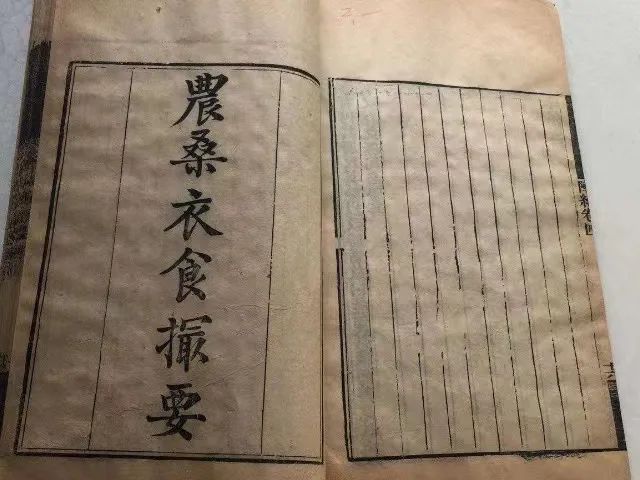 農桑衣食撮要